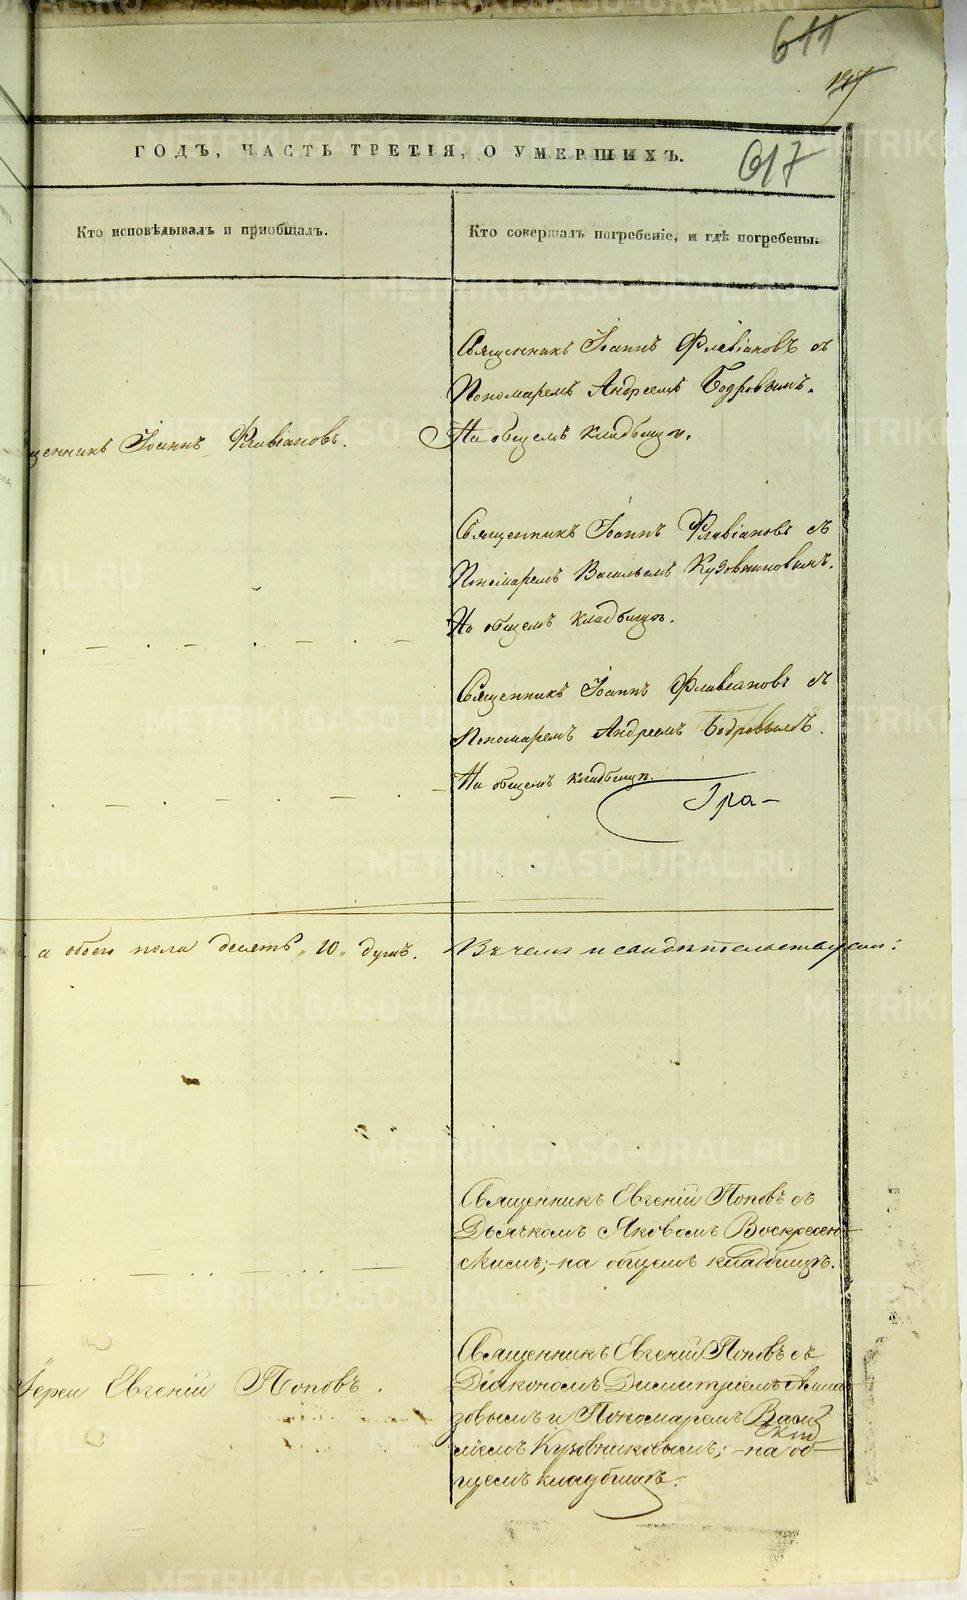 611
617
ГОДЪ, ЧАСТЬ ТРЕТІЯ, О УМЕРШИХЪ.
Кто исповѣдывалъ и пріобщалъ.
Кто совершалъ погребеніе, и гдѣ погребены.
Священникъ Іоаннъ Флавіановъ съ
Пономаремъ Андреемъ Бодровымъ.
На общемъ кладбищѣ.
щенникъ Іоаннъ Флавіановъ.
Священникъ Іоаннъ Флавіановъ съ
Пономаремъ Васильемъ Кузовниковымъ.
На общемъ кладбищѣ.
Священникъ Іоаннъ Флавіановъ съ
Пономаремъ Андреемъ Бодровымъ.
На общемъ кладбищѣ.
Гра-
а обоего пола десять „10„ душъ.
Въ чемъ и свидѣтельствуемъ:
Священникъ Евгеній Поповъ съ
Дьячкомъ Яковомъ Воскресен-
скимъ; -на общемъ кладбищѣ.
Іерей Евгеній Поповъ.
Священникъ Евгеній Поповъ съ
Діакономъ Димитріемъ
зовымъ и Пономаремъ
Кузовниковымъ; -на об-
щемъ кладбищѣ.
METRIKI.GASO-URAL.RU